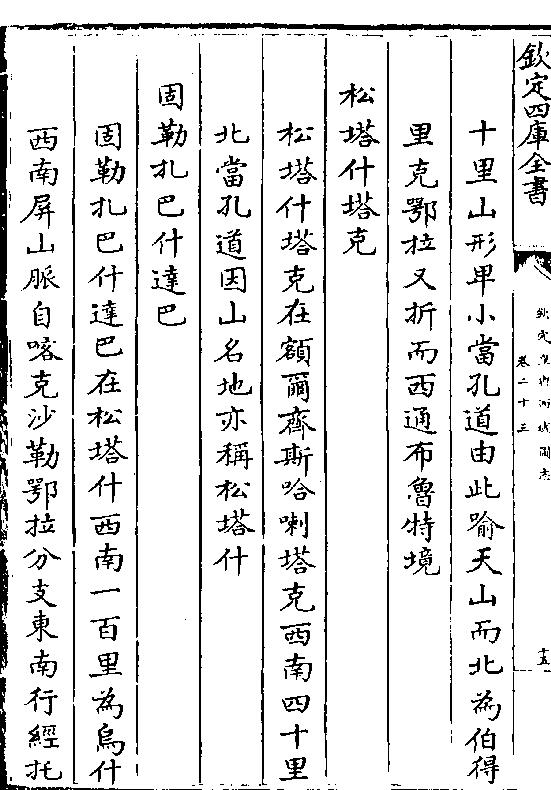 欽定四庫全書
欽定皇輿西域圖志
卷二十三
十五
十里山形卑小當孔道由此踰天山而北為伯得
里克鄂拉又折而西通布魯特境
松塔什塔克
松塔什塔克在額爾齊斯哈喇塔克西南四十里
北當孔道因山名地亦稱松塔什
固勒扎巴什達巴
固勒扎巴什達巴在松塔什西南一百里為烏什
西南屏山脈自喀克沙勒鄂拉分支東南行經托